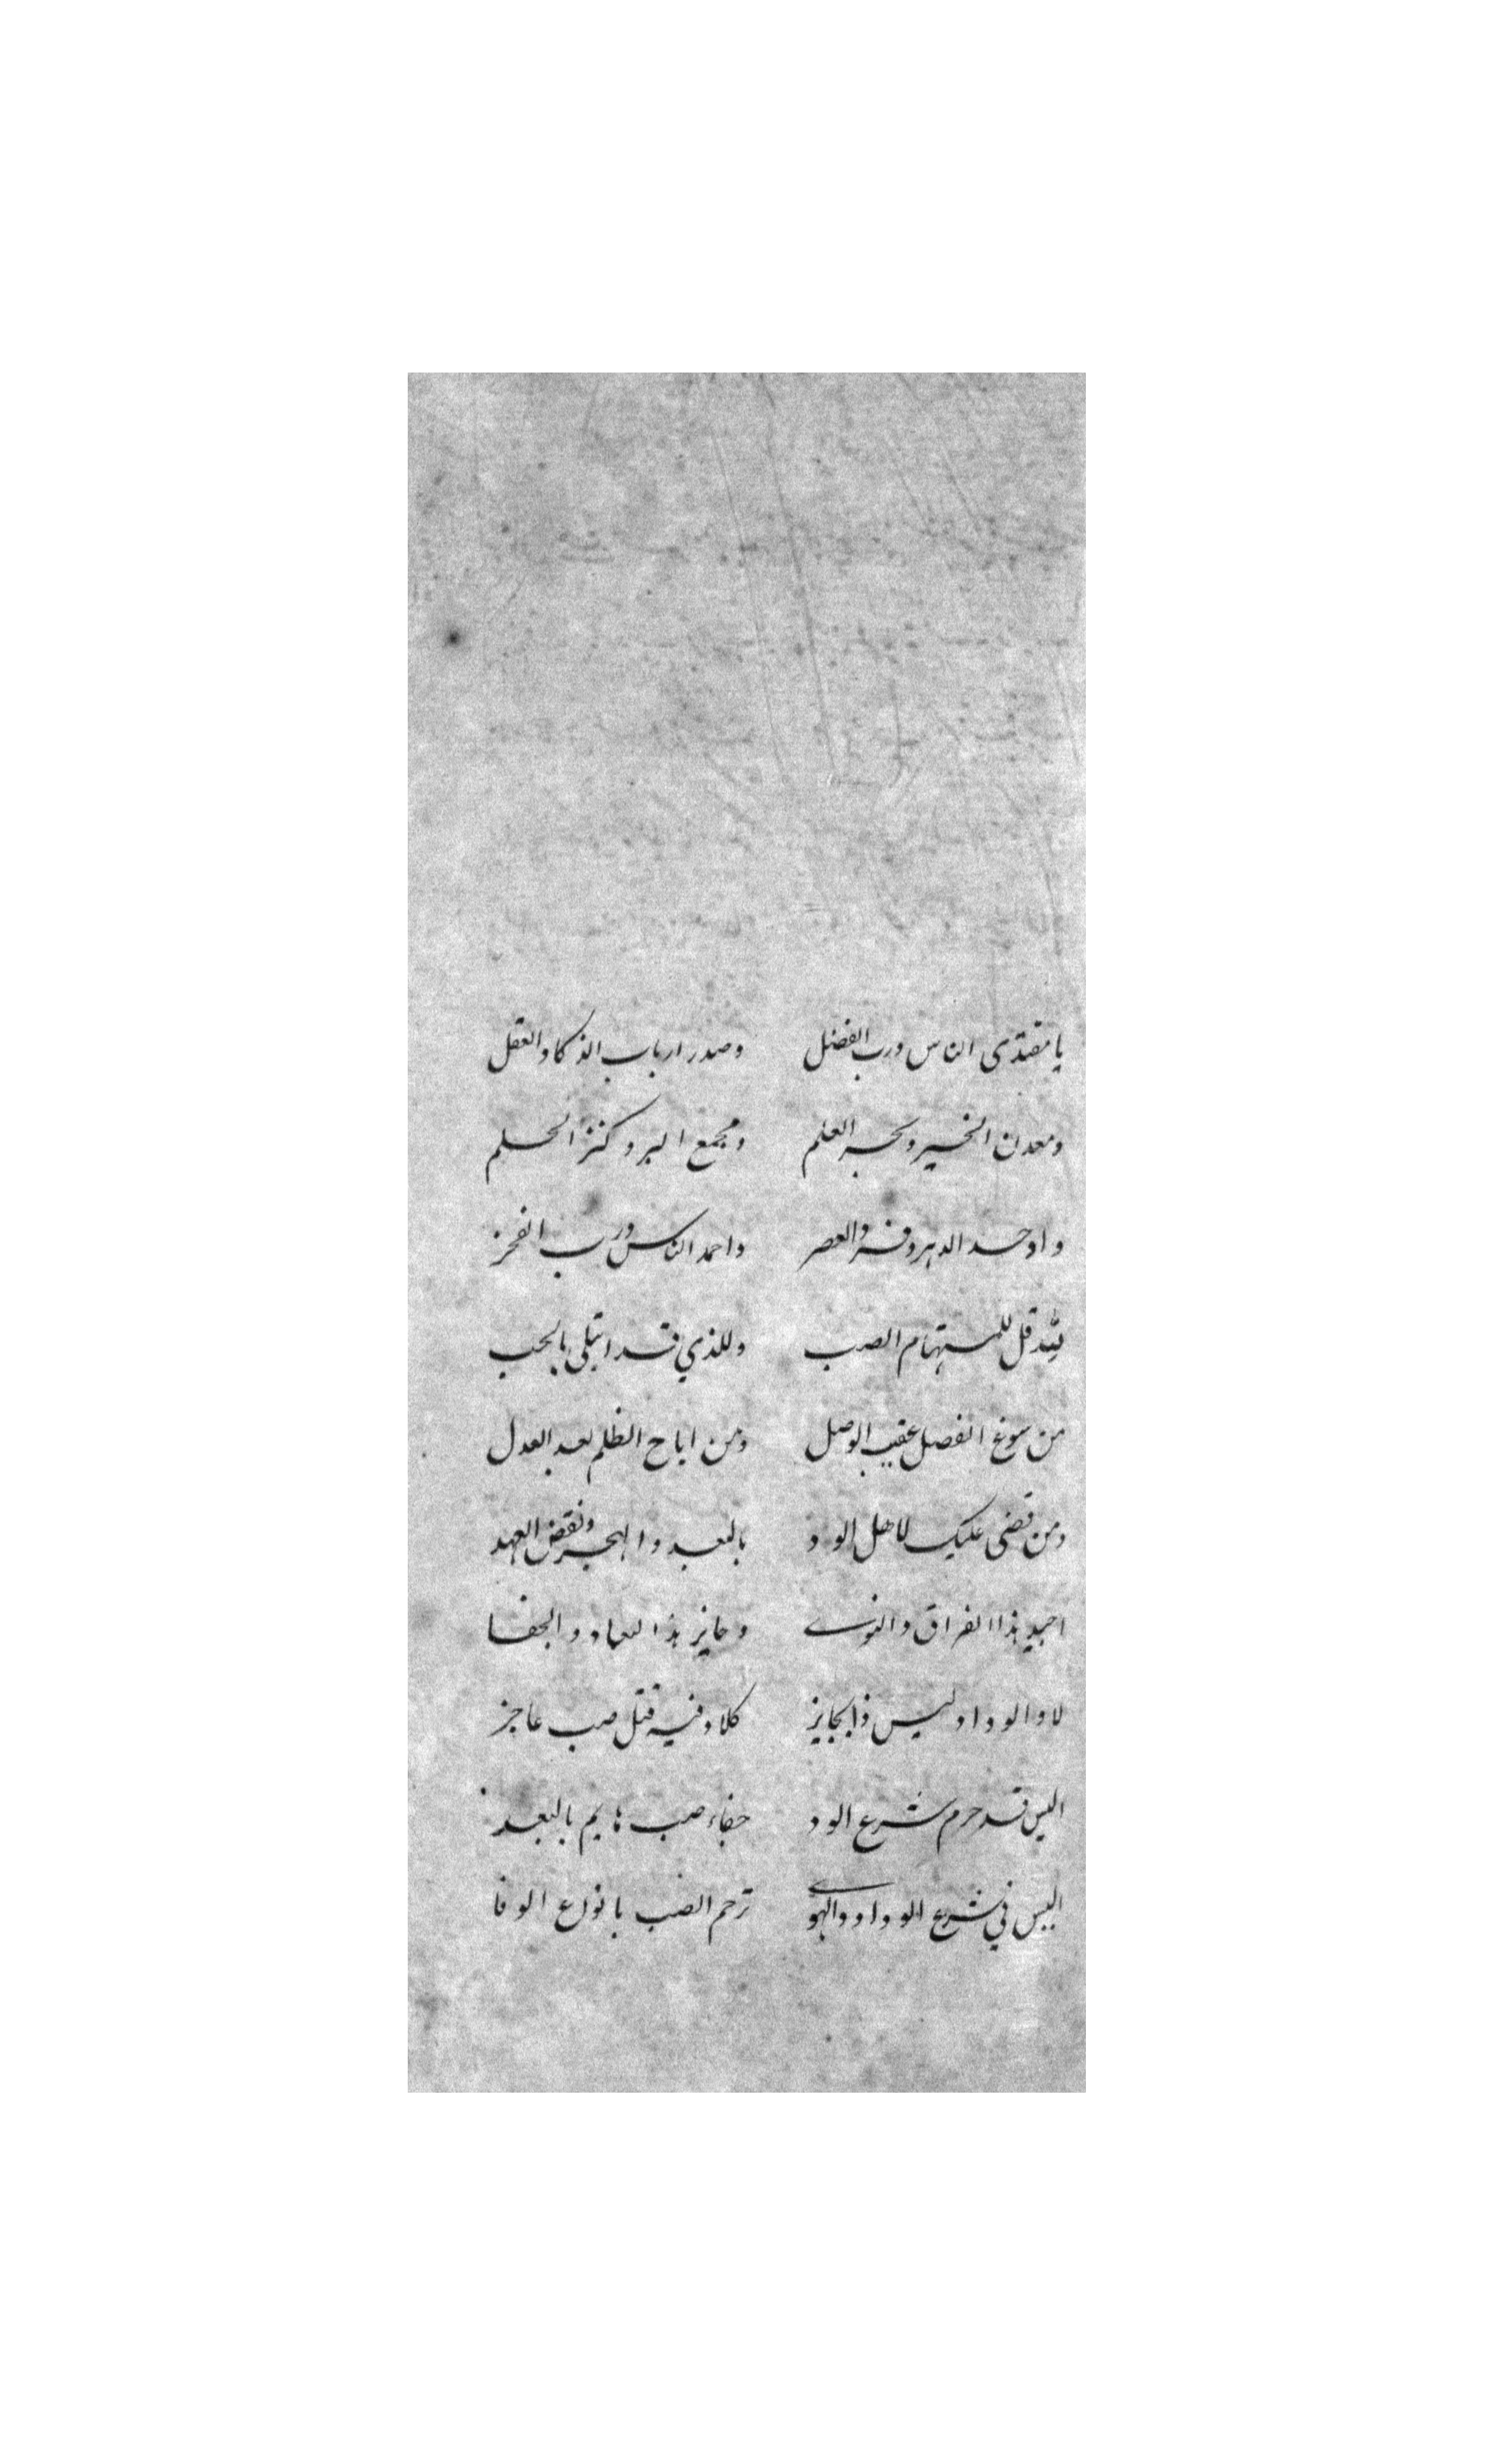 يا مقتدى الناس ورب الفضل وصدر ارباب الذكا والعقل
ومعدن الخير وبحر العلم ومجمع البر وكنز الحلم
واوحد الدهر وفرد العصر واحمد الناس ورب الفخر
بالله قل للمستهام الصب وللذي قد ابتلى بالحب
من سوغ الفصل عقيب الوصل ومن اباح الظلم بعد العدل
ومن قضى عليك لاهل الود بالبعد والهجر ونقض العهد
اجيد هذا الفراق والنوى وجايز هذا البعاد والجفا
لا والوداد ليس ذا بجايز كلا وفيه قتل صب عاجز
اليس قد حرم شرع الود جفاء صب هايم بالبعد
اليس في شرع الوداد والهوى ترحم الصب بانواع الوفا